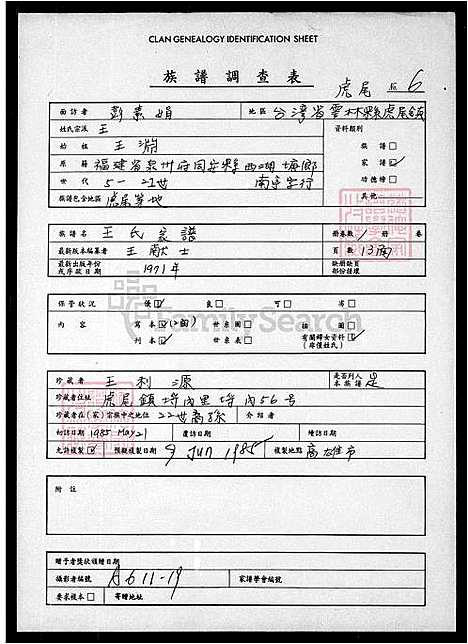 CLAN GENEALOGY IDENTIFICATION SHEET
族譜調查表
虎尾 6
面訪者 彭素娟 地區 台灣省雲林縣虎尾鎮
姓氏宗派 王 資料類別
始祖 王 族譜□
原籍 福建省泉州府同安縣西 鄉 家譜☑
世代 5 - 22世 功德榜□
族譜包含地區 虎尾等地 其他
族譜名 王氏家譜 冊卷數 1 冊 卷
最新版本編纂者 王獻士 頁數 13
最新出版年份或序跋日期 1971年 缺冊缺頁部份摟壞
保管狀況 優☑ 良□ 可□ 劣□
內容 寫本☑ 世系圖□ 插圖□
刊本□ 世系表□ 有關婦女資料☑
(席僅姓氏)
FamilySearch
珍藏者 王利源 是否列入本族譜 是
珍藏者住址 虎尾鎮埒內里埒內56号
珍藏者在(家)宗族中之地位 22世裔孫 介紹者
初訪日期 1985 May 21 覆訪日期 續訪日期
允許複製☑ 預擬複製日期 9 JUN 1985 複製地點 高雄市
附註
贈予者獎狀頒贈日期
攝影者編號 A611-19 家譜學會編號
要求複本□ 寄贈地址